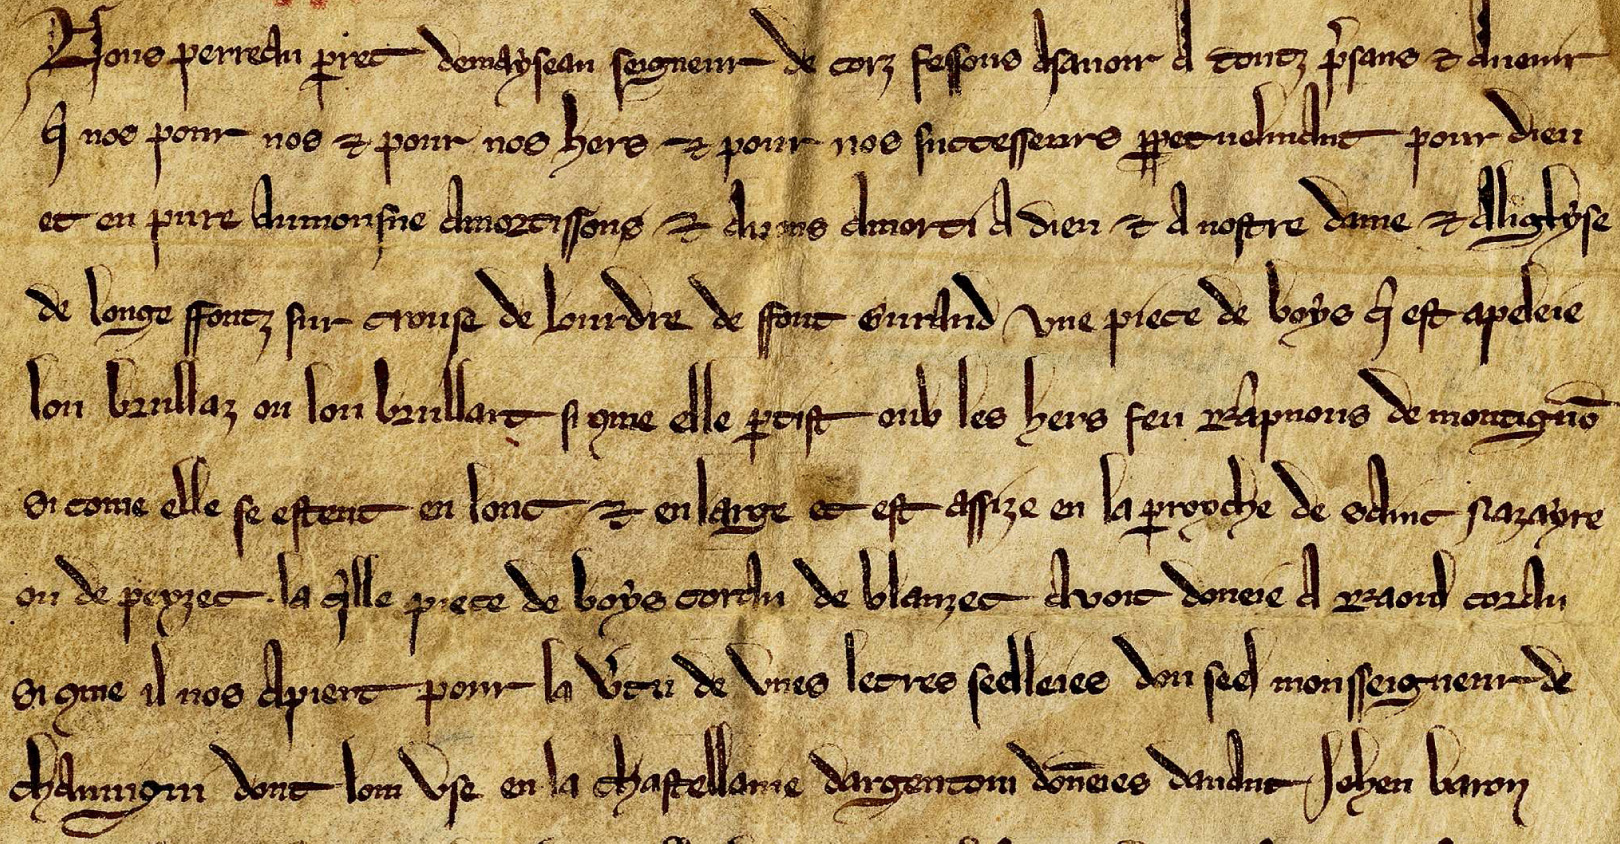 Nous perreau pret demayseau seigneur de corz fessons asauoir a toutz psans et auenir
q nos pour nos et pour nos hers et pour nos successeurs ppetuelmant pour dieu
et en pure aumousne amortissons et auons amorti a dieu et a nostre dame et aliglyse
de longe ffontz sur crouse de lourdre de ffont euraud vne piece de boys q est apeleie
lou brullaz ou lou brullart si 9me elle ptist oub les hers feu rapnous de montignō
si come elle se estent en lont et en large et est assize en la proyche de saint nazayre
ou de peyzet la qlle piece de boys cordu de blanzet auoit doneie a raoul cordu
si 9me il nos apiert pour la vtu de vnes letres seelleies dou seel monsseigneur de
chauuigni dont lom vse en la chastellanie dargentom dōneies dauant Johen baron